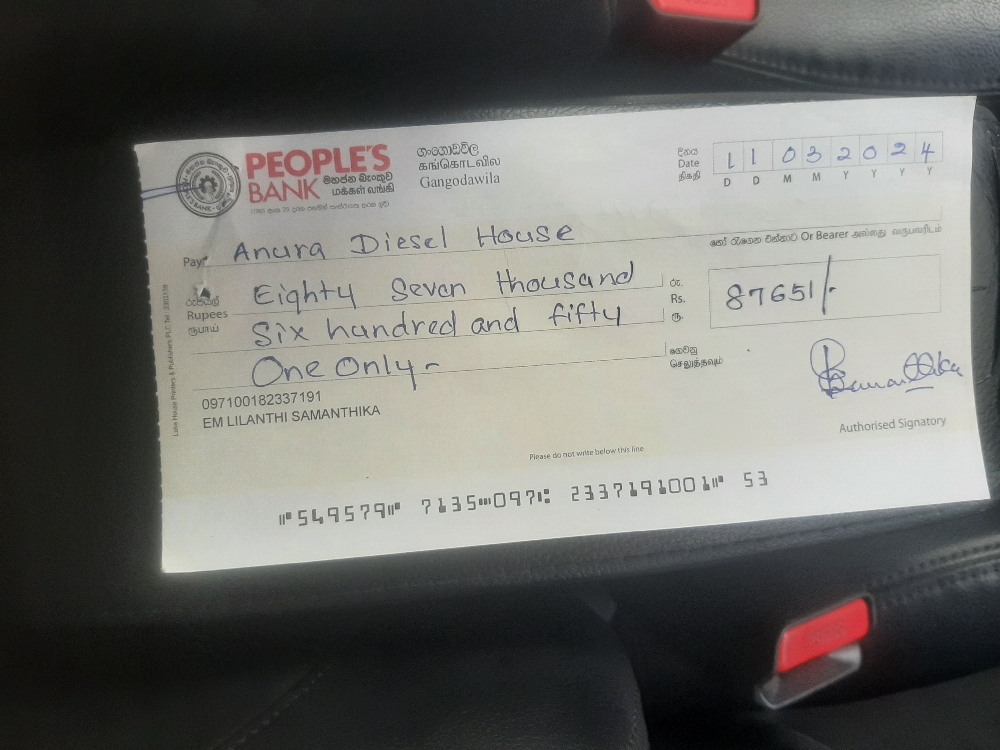 PEOPLE'S
BANK මහජන බැංකුව
மக்கள் வங்கி
ගංගොඩවිල
கங்கொடவில
Gangodawila
දිනය
Date
திகதி
11032024
D D M M Y Y Y Y
Pay Anura Diesel House
හෝ රැගෙන එන්නාට Or Bearer அல்லது வருபவரிடம்
රුපියල්
Rupees
ரூபாய்
Eighty Seven thousand
Six hundred and fifty
One Only -
රු.
Rs.
ரூ.
87651/-
ගෙවනු
செலுத்தவும்
097100182337191
EM LILANTHI SAMANTHIKA
Authorised Signatory
Please do not write below this line
⑈549579⑈ 7135⑉097⑆ 2337191001⑈ 53